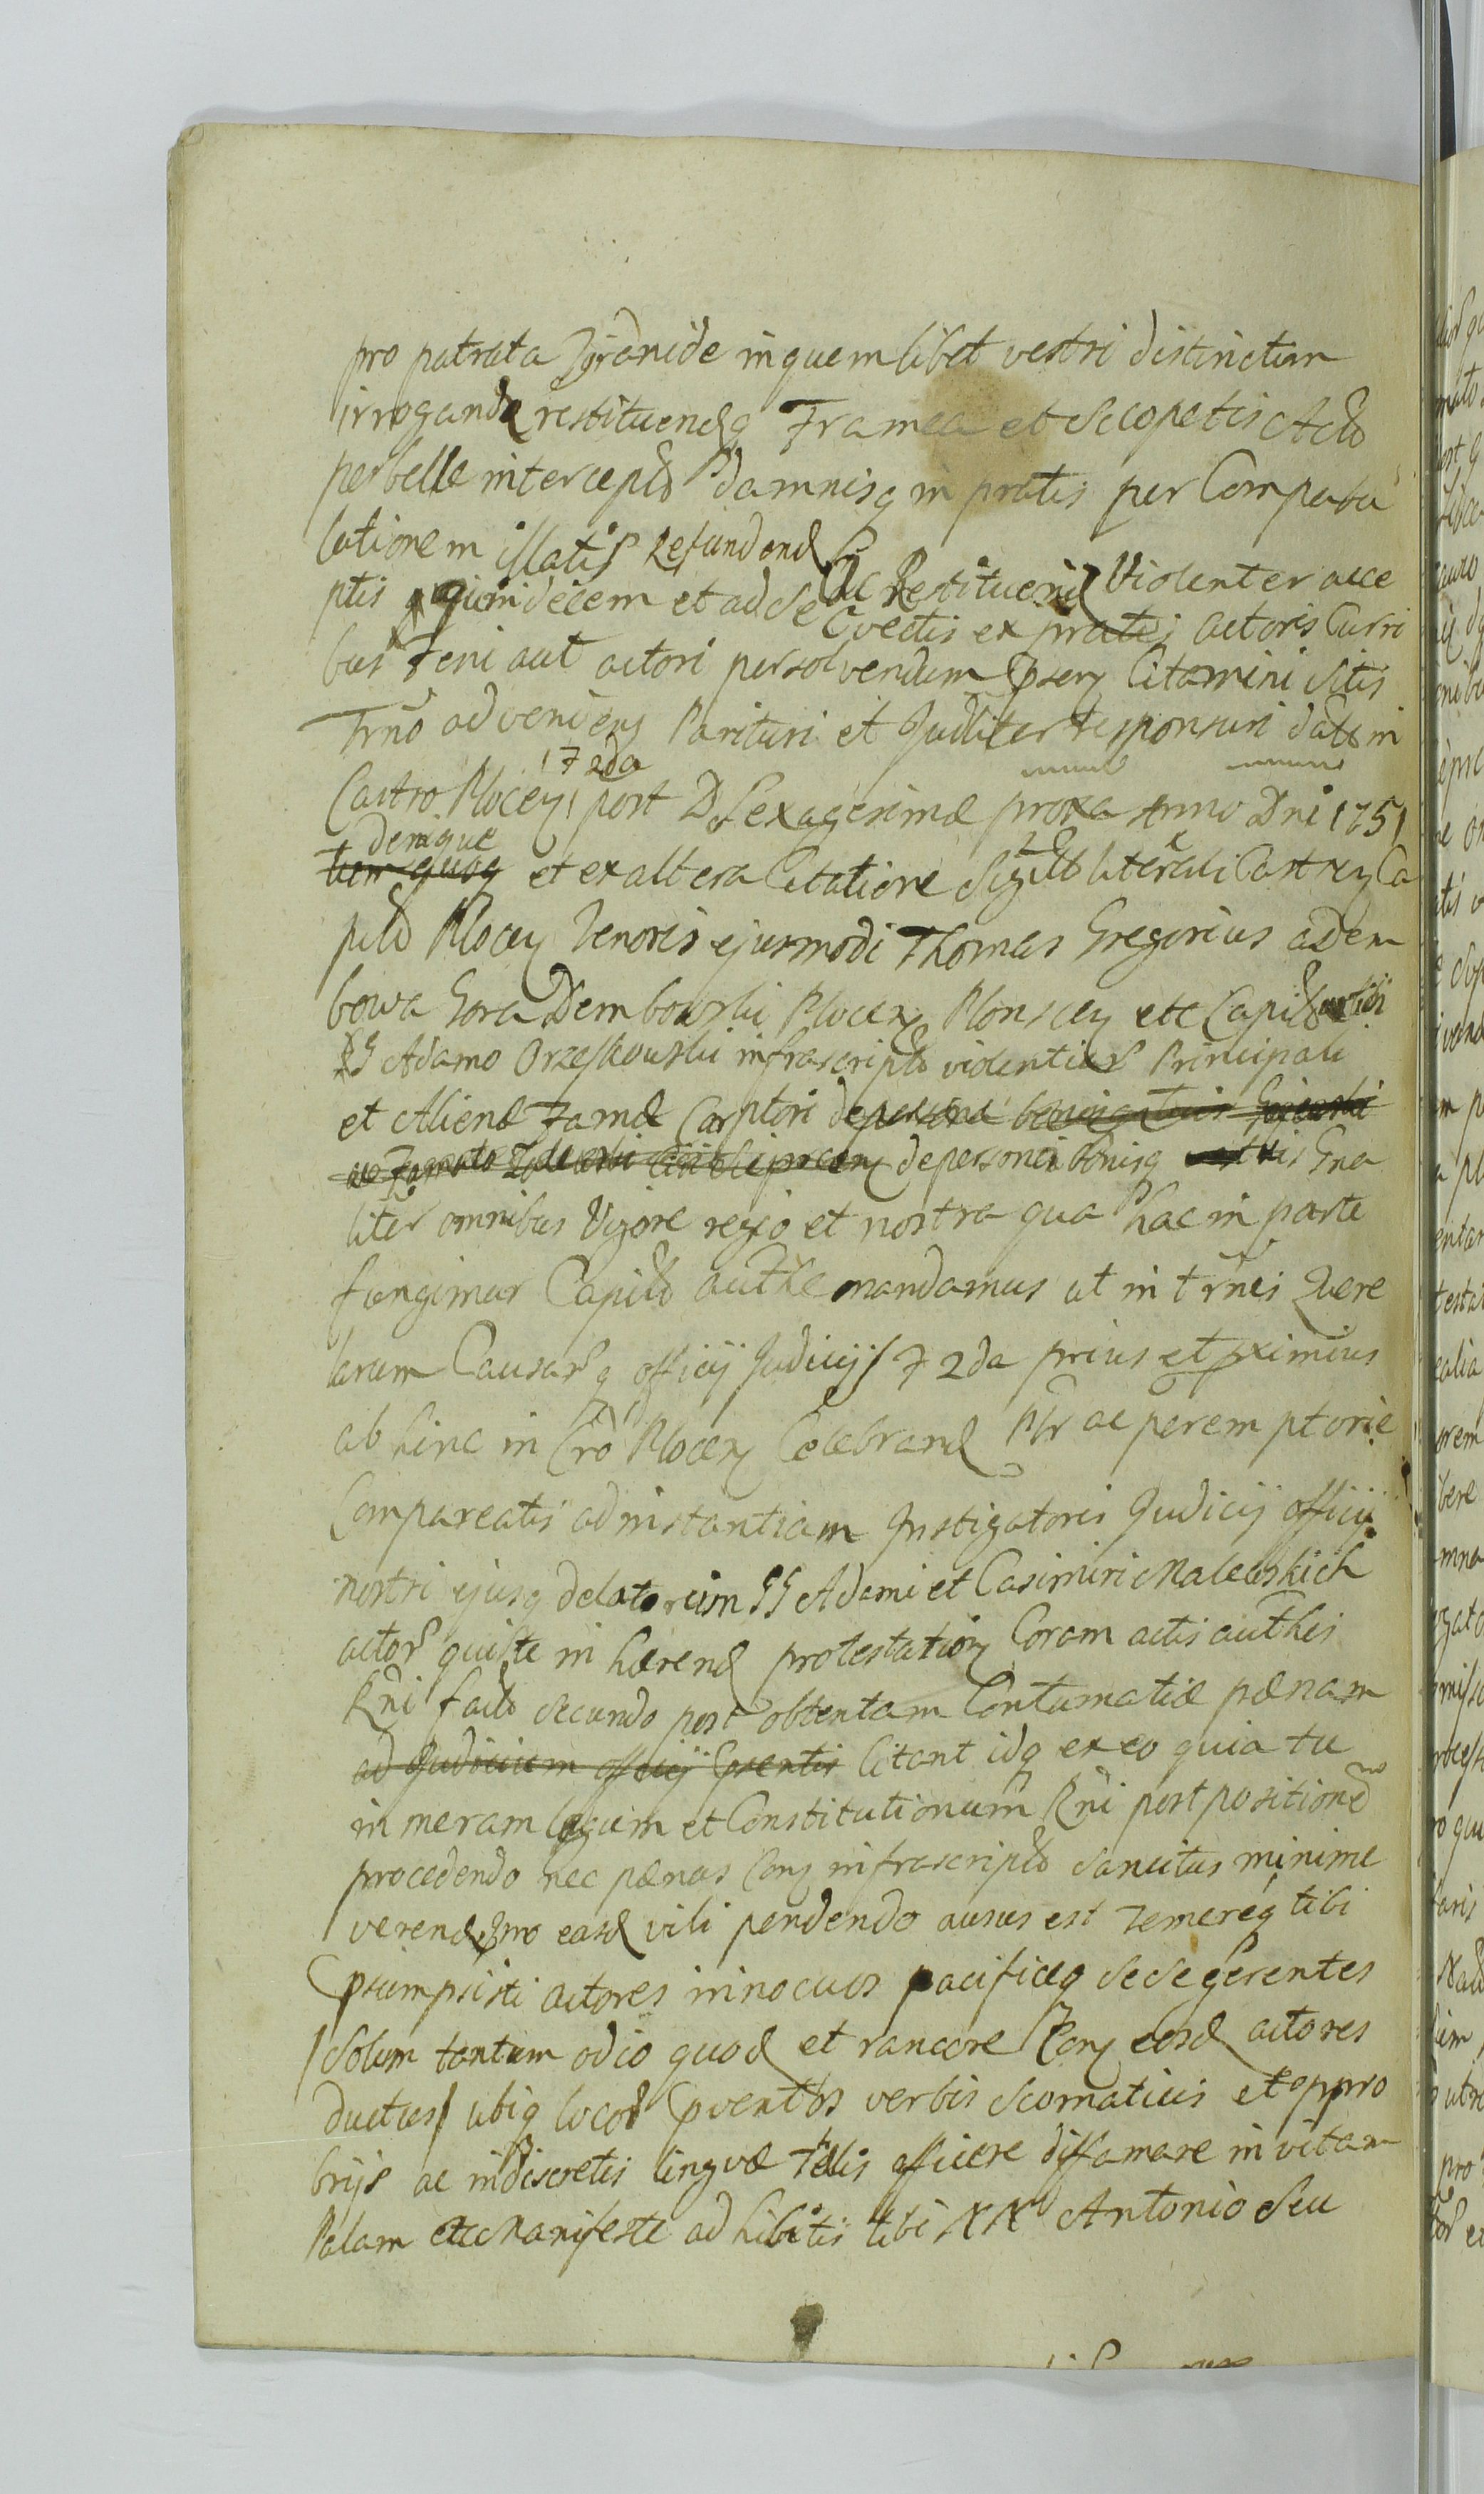 pro patrata Tyranide in quemlibet vestri distinctim
irrogand restituendq Framea et Sclopetis Acto
per belle intercepto damnisq in pratis per Compabu
lationem illatis Refundend
ac Restituend Violenter acce
ptis quindecim et ad se Cvectis ex pratis actoris Curri
bus Feni aut actori persolvendum Citamini Sitis
Trno advenien Parituri et Judliter responsuri datt in
Castro Plocen post D Sexagesimæ proxa Anno Dni 1751
f 2da
denique
tum quoq et ex altera Citatione Sigillo literali Castren Ca
pitl Plocen Tenoris ejusmodi Thomas Gregorius a Dem
bowa Gora Dembowski Plocen Plonscen etc Capit tibi
G Adamo Orzeszkowski infrascripto violentiar Principali
et Alienæ Famæ Carptori de persona bonisq
de persona bonisq Gna
liter omnibus Vigore regio et nostra qua hac in parte
fungimur Capitl authe mandamus ut in trnis Quere
larum Causarq officij Judicij f 2da prius et pximius
ab hinc in Cro Plocen Celebrand Plr ac peremptorie
Compareatis ad instantiam Instigatoris Judicij officij
nostri ejusq delatorum GG Adami et Casimiri Malewskich
actor qui te in hærend protestation Coram actis authis
Rni fact Secundo post obtentam Contumatiæ pænam
ad Judicium officij Citant idq ex eo quia tu
in meram legum et Constitutionum Rni postpositione
procedendo nec pænas Con infrascripto sancitas minime
verend imo easd vili pendendo ausus est temereq tibi
psumpsisti actores innocuos pacificeq sese gerentes
solum tantum odio quod et rancore Con eosd actores
ductus ubiq locor pventos verbis Scomaticis et oppro
brijs ac indiscretis linguæ Telis afficere diffamare in vitam
Palam et Manifeste adhibitis tibi NN Antonio Seu